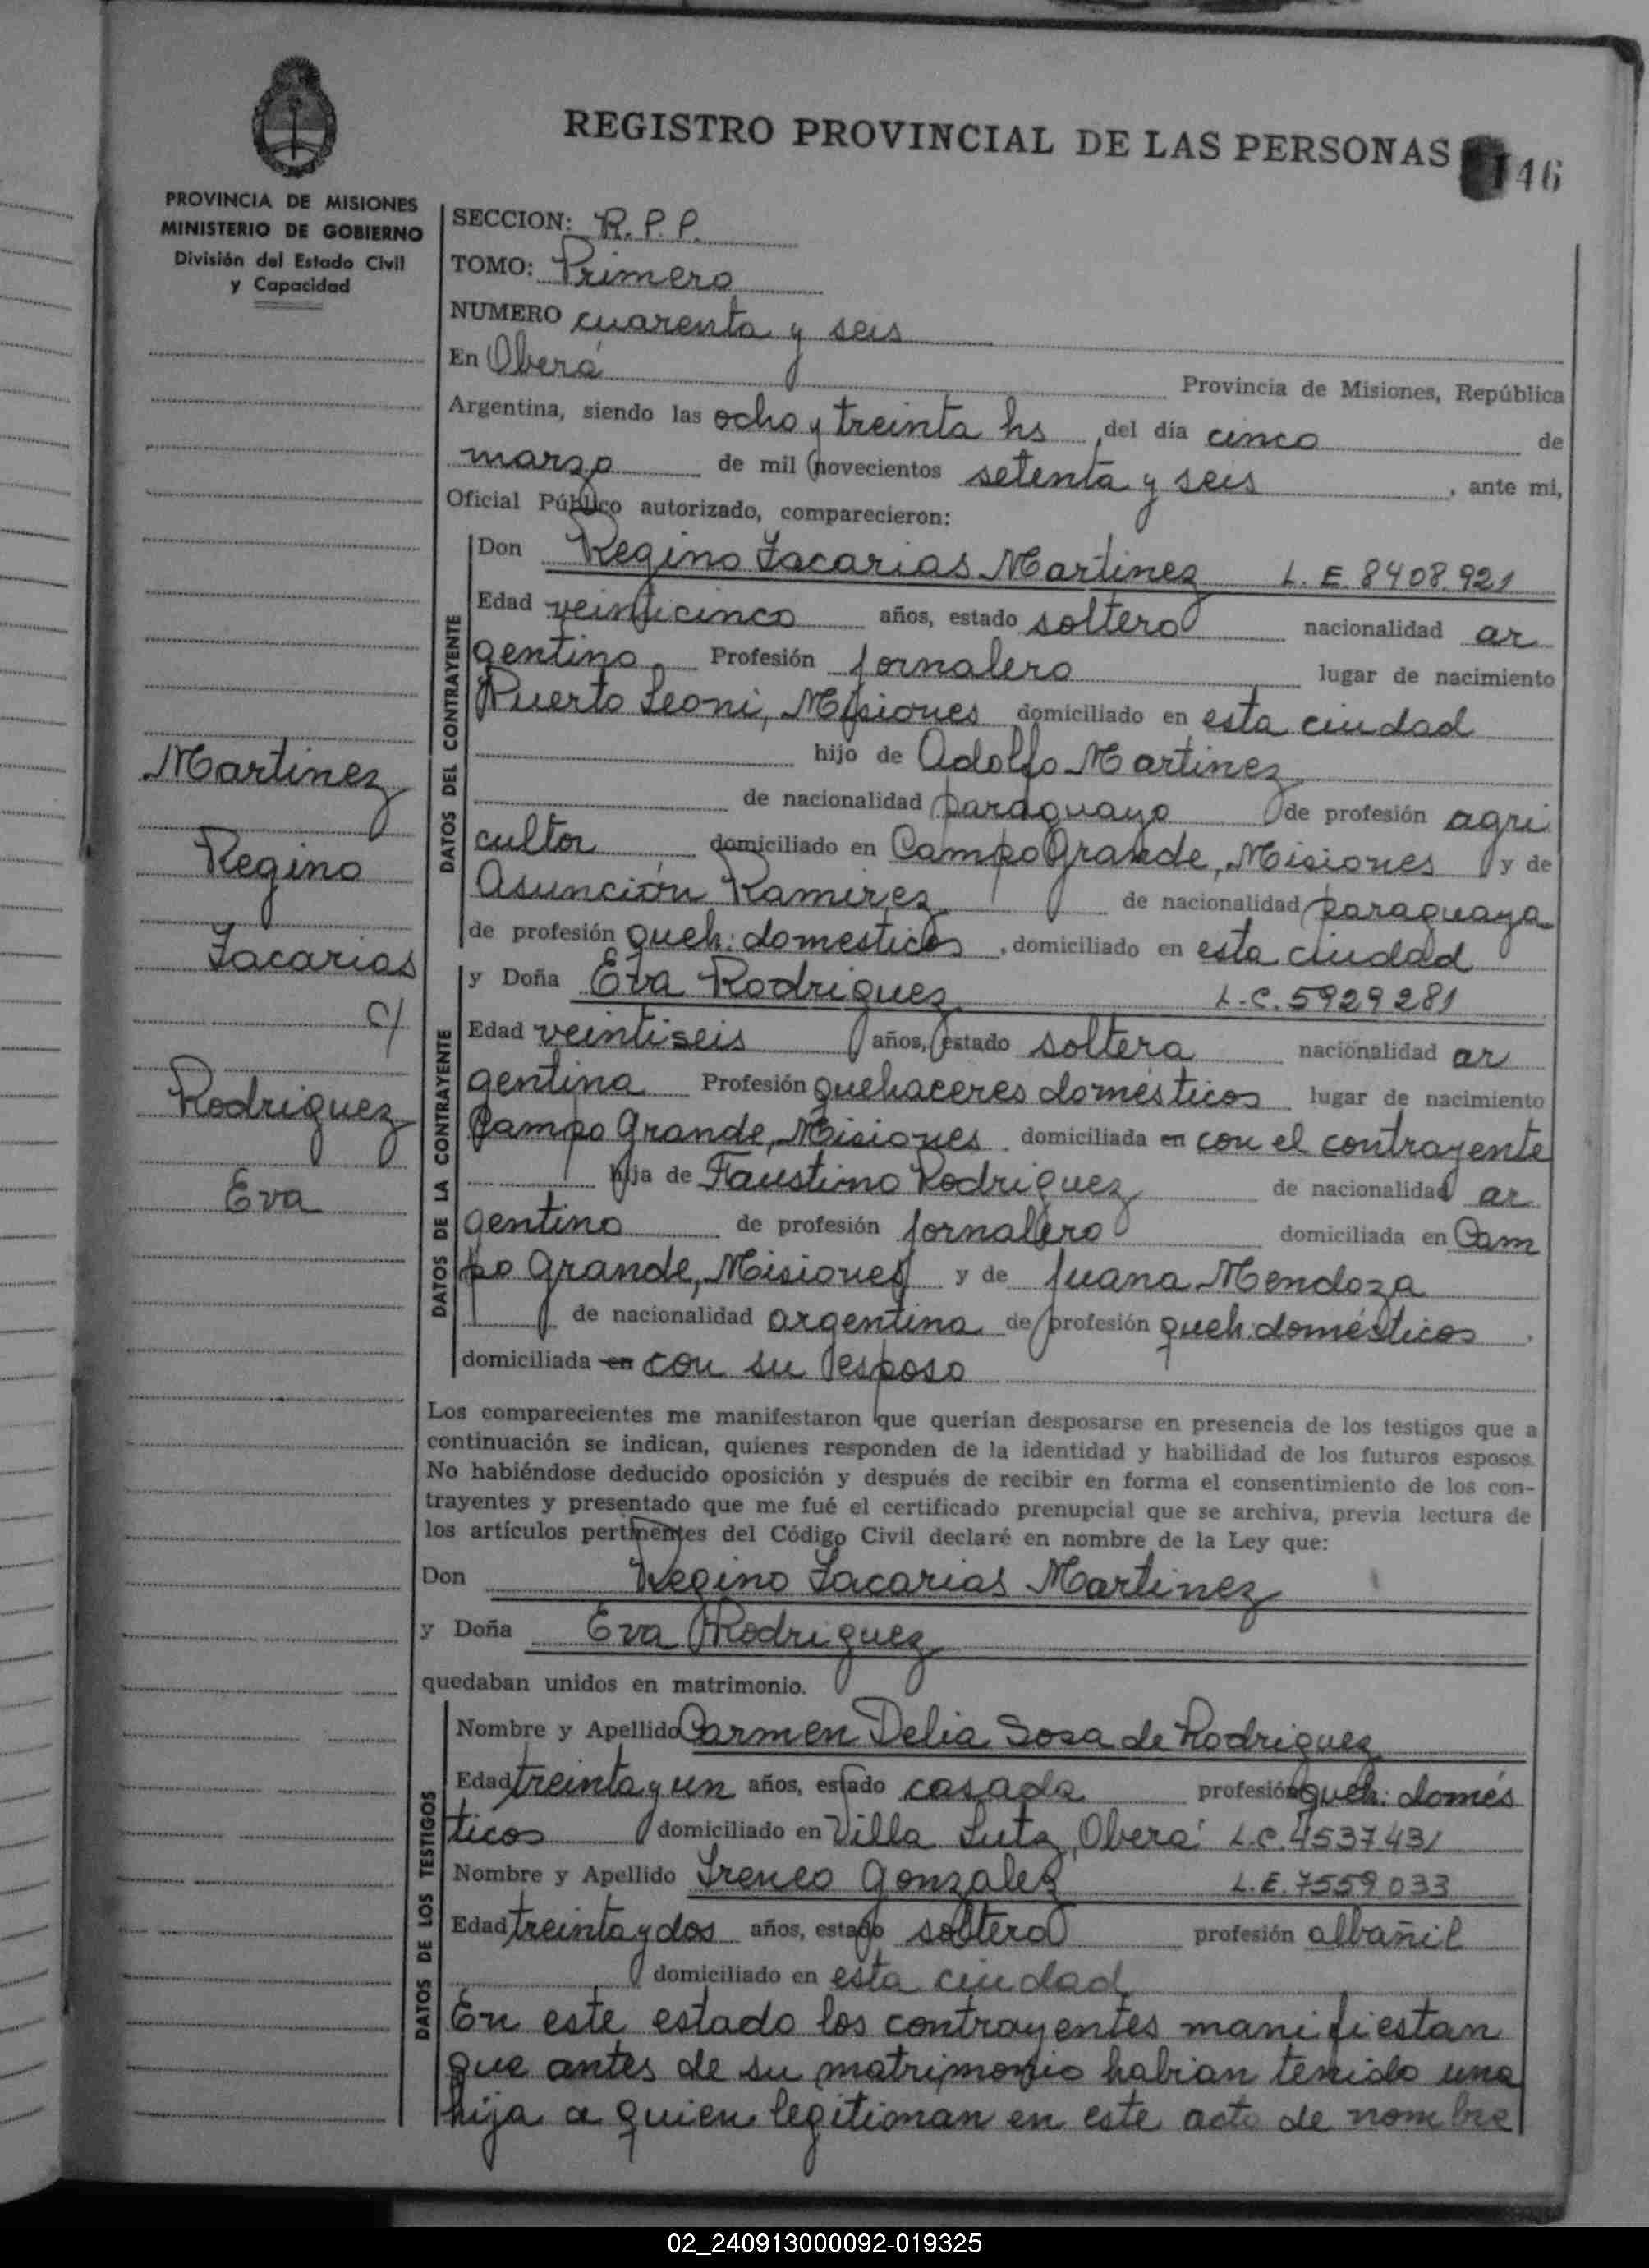 REGISTRO PROVINCIAL DE LAS PERSONAS 146
PROVINCIA DE MISIONES
MINISTERIO DE GOBIERNO
División del Estado Civil
y Capacidad
SECCION: R. P. P.
TOMO: Primero
NUMERO cuarenta y seis
En Oberá Provincia de Misiones, República
Argentina, siendo las ocho y treinta hs, del día cinco de
marzo de mil novecientos setenta y seis, ante mi,
Oficial Público autorizado, comparecieron:
DATOS DEL CONTRAYENTE
Don Regino Zacarias Martinez L. E. 8408.921
Edad veinticinco años, estado soltero nacionalidad ar
gentino Profesión jornalero lugar de nacimiento
Puerto Leoni, Misiones domiciliado en esta ciudad
hijo de Adolfo Martinez
de nacionalidad paraguayo de profesión agri
cultor domiciliado en Campo Grande, Misiones y de
Asunción Ramirez de nacionalidad paraguaya
de profesión queh: domesticos, domiciliado en esta ciudad
DATOS DE LA CONTRAYENTE
y Doña Eva Rodriguez L.C. 5929281
Edad veintiseis años, estado soltera nacionalidad ar
gentina Profesión quehaceres domésticos lugar de nacimiento
Campo Grande, Misiones domiciliada en con el contrayente
hija de Faustino Rodriguez de nacionalidad ar
gentino de profesión jornalero domiciliada en Cam
po Grande, Misiones y de Juana Mendoza
de nacionalidad argentina de profesión queh: domésticos,
domiciliada en con su esposo
Martinez
Regino
Zacarias
c/
Rodriguez
Eva
Los comparecientes me manifestaron que querían desposarse en presencia de los testigos que a
continuación se indican, quienes responden de la identidad y habilidad de los futuros esposos.
No habiéndose deducido oposición y después de recibir en forma el consentimiento de los con-
trayentes y presentado que me fué el certificado prenupcial que se archiva, previa lectura de
los artículos pertinentes del Código Civil declaré en nombre de la Ley que:
Don Regino Zacarias Martinez
y Doña Eva Rodriguez
quedaban unidos en matrimonio.
DATOS DE LOS TESTIGOS
Nombre y Apellido Carmen Delia Sosa de Rodriguez
Edad treinta y un años, estado casada profesión queh: domés
ticos domiciliado en Villa Lutz, Oberá L.C. 4537431
Nombre y Apellido Ireneo Gonzalez L.E. 7559033
Edad treinta y dos años, estado soltero profesión albañil
domiciliado en esta ciudad
En este estado los contrayentes manifiestan
que antes de su matrimonio habian tenido una
hija a quien legitiman en este acto de nombre
02_240913000092-019325